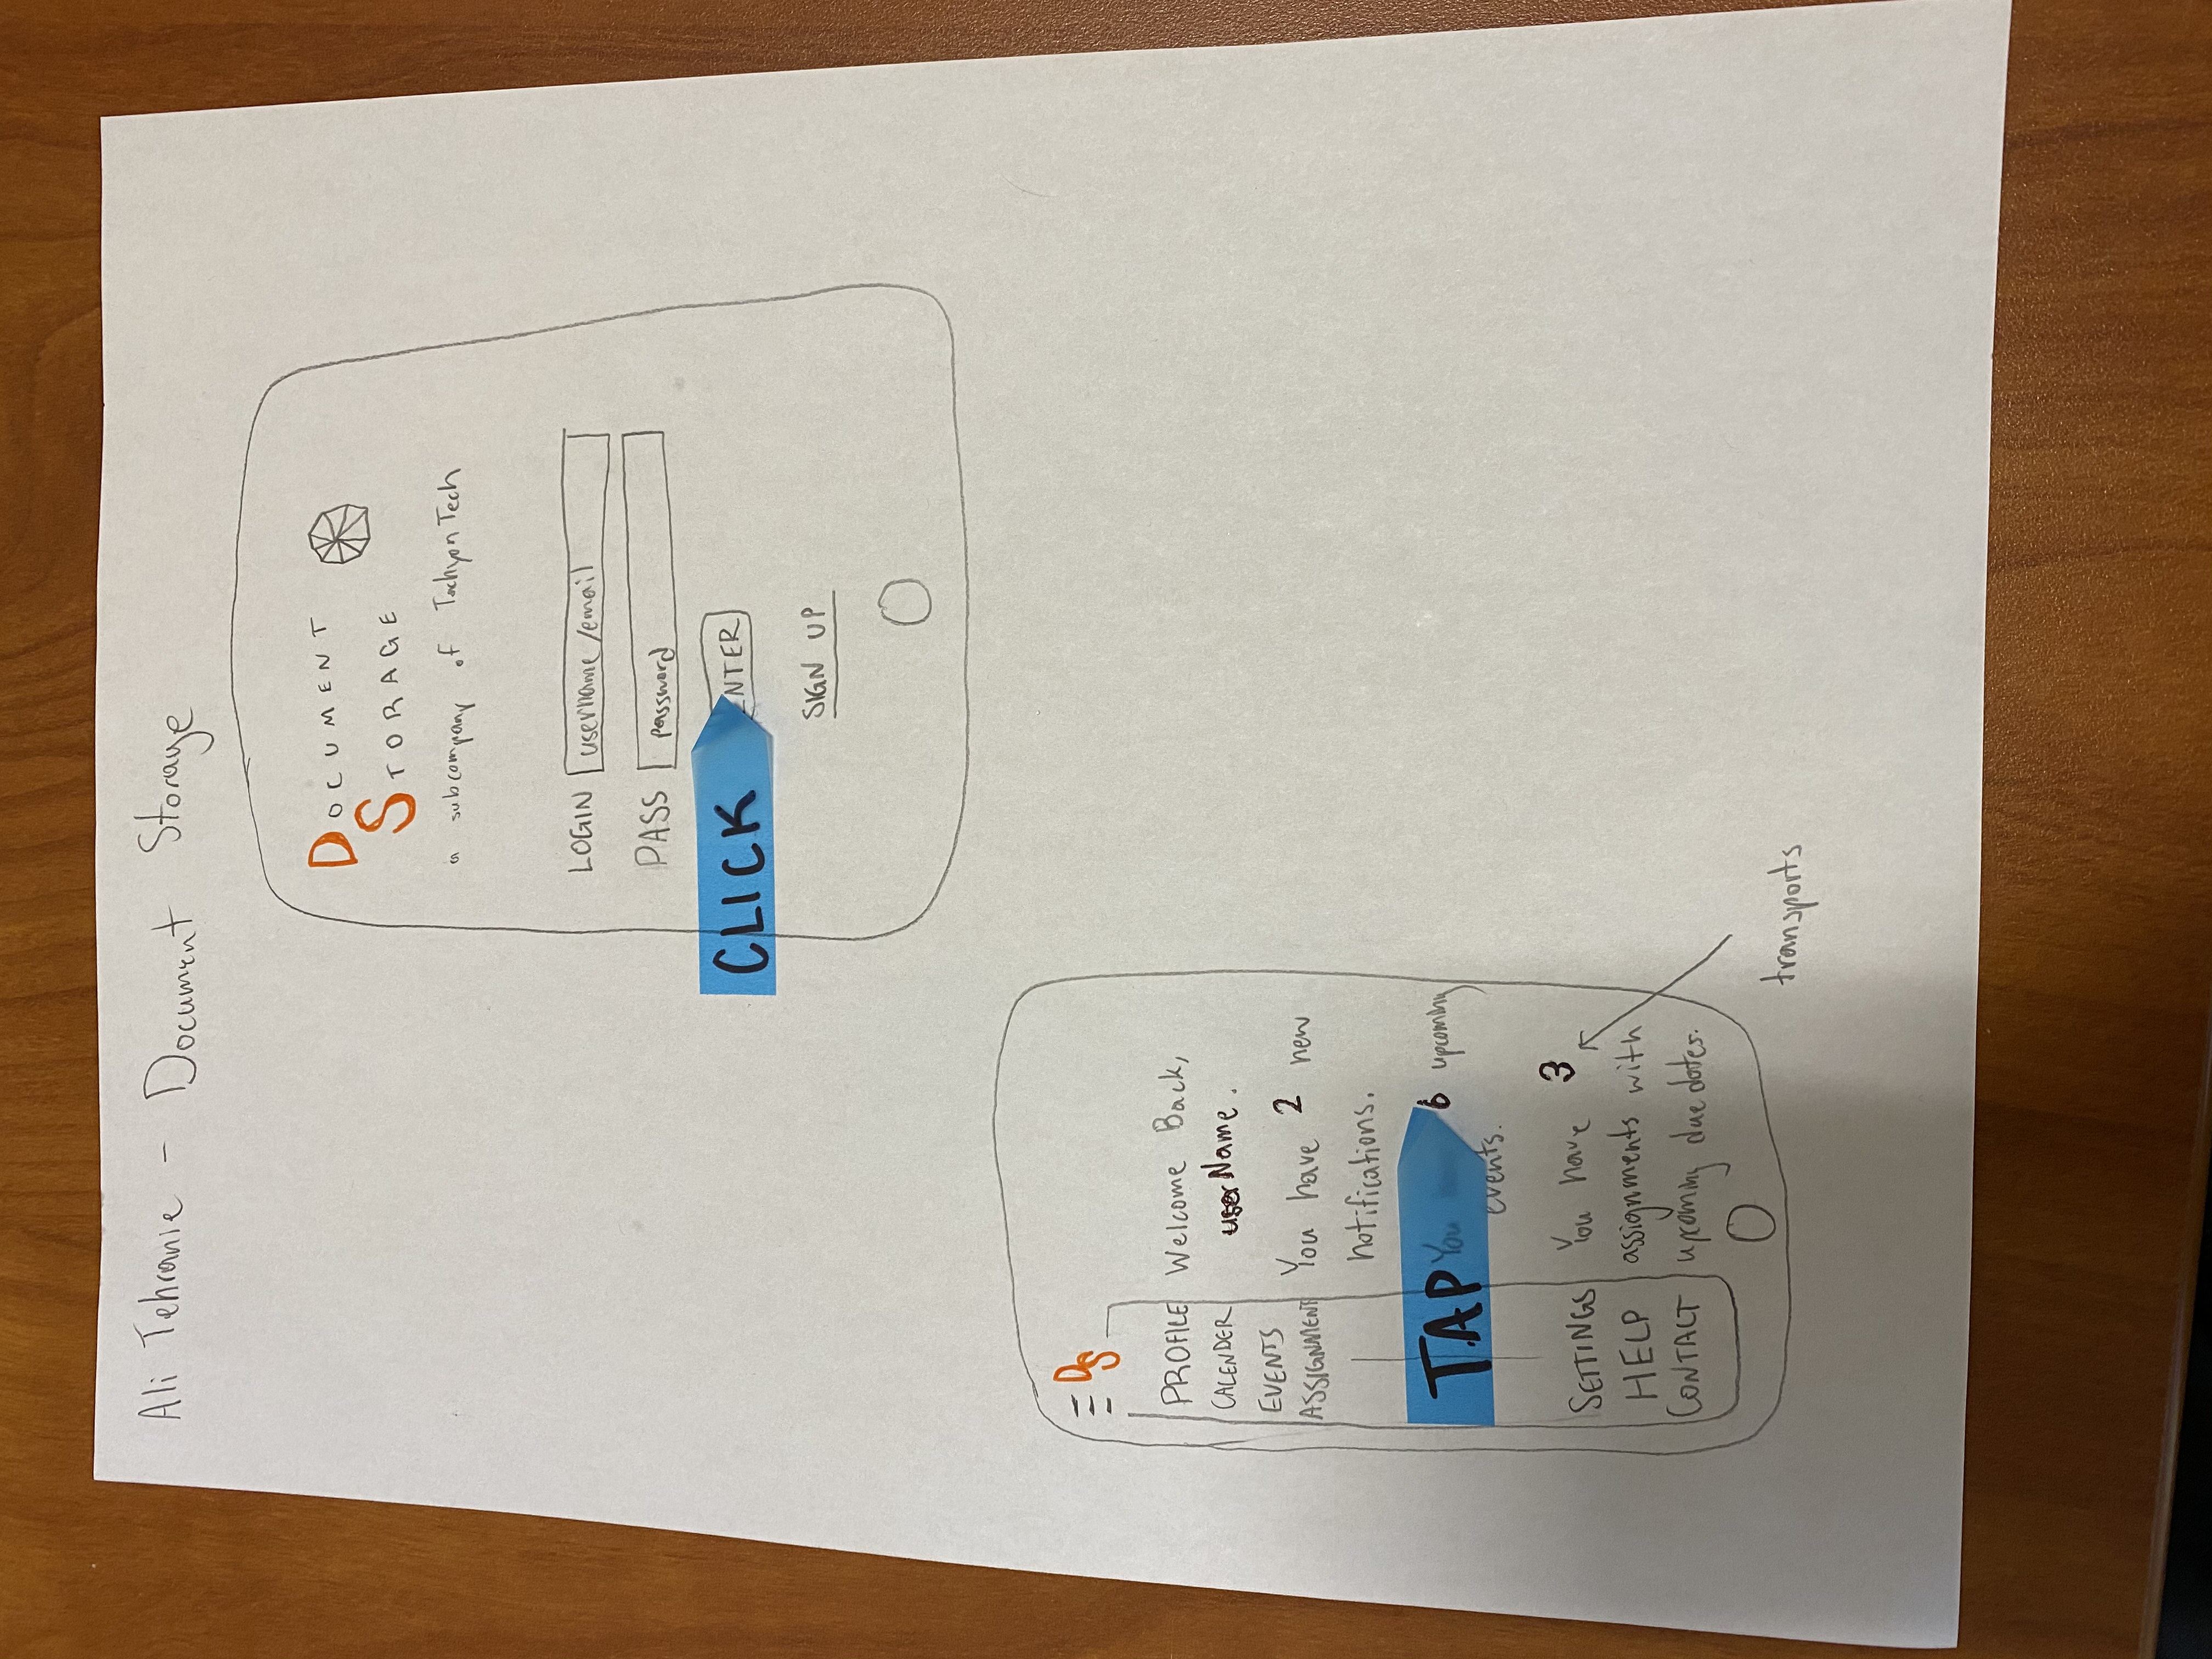 Ali Tehranie - Document Storage
DOCUMENT
STORAGE
a subcompany of TachyonTech
LOGIN username/email
PASS password
CLICK ENTER
SIGN UP
DS
PROFILE
CALENDER
EVENTS
ASSIGNMENT
SETTINGS
HELP
CONTACT
Welcome Back,
userName.
You have 2 new
notifications.
TAP
You have 6 upcoming
events.
You have 3
assignments with
upcoming due dates.
transports